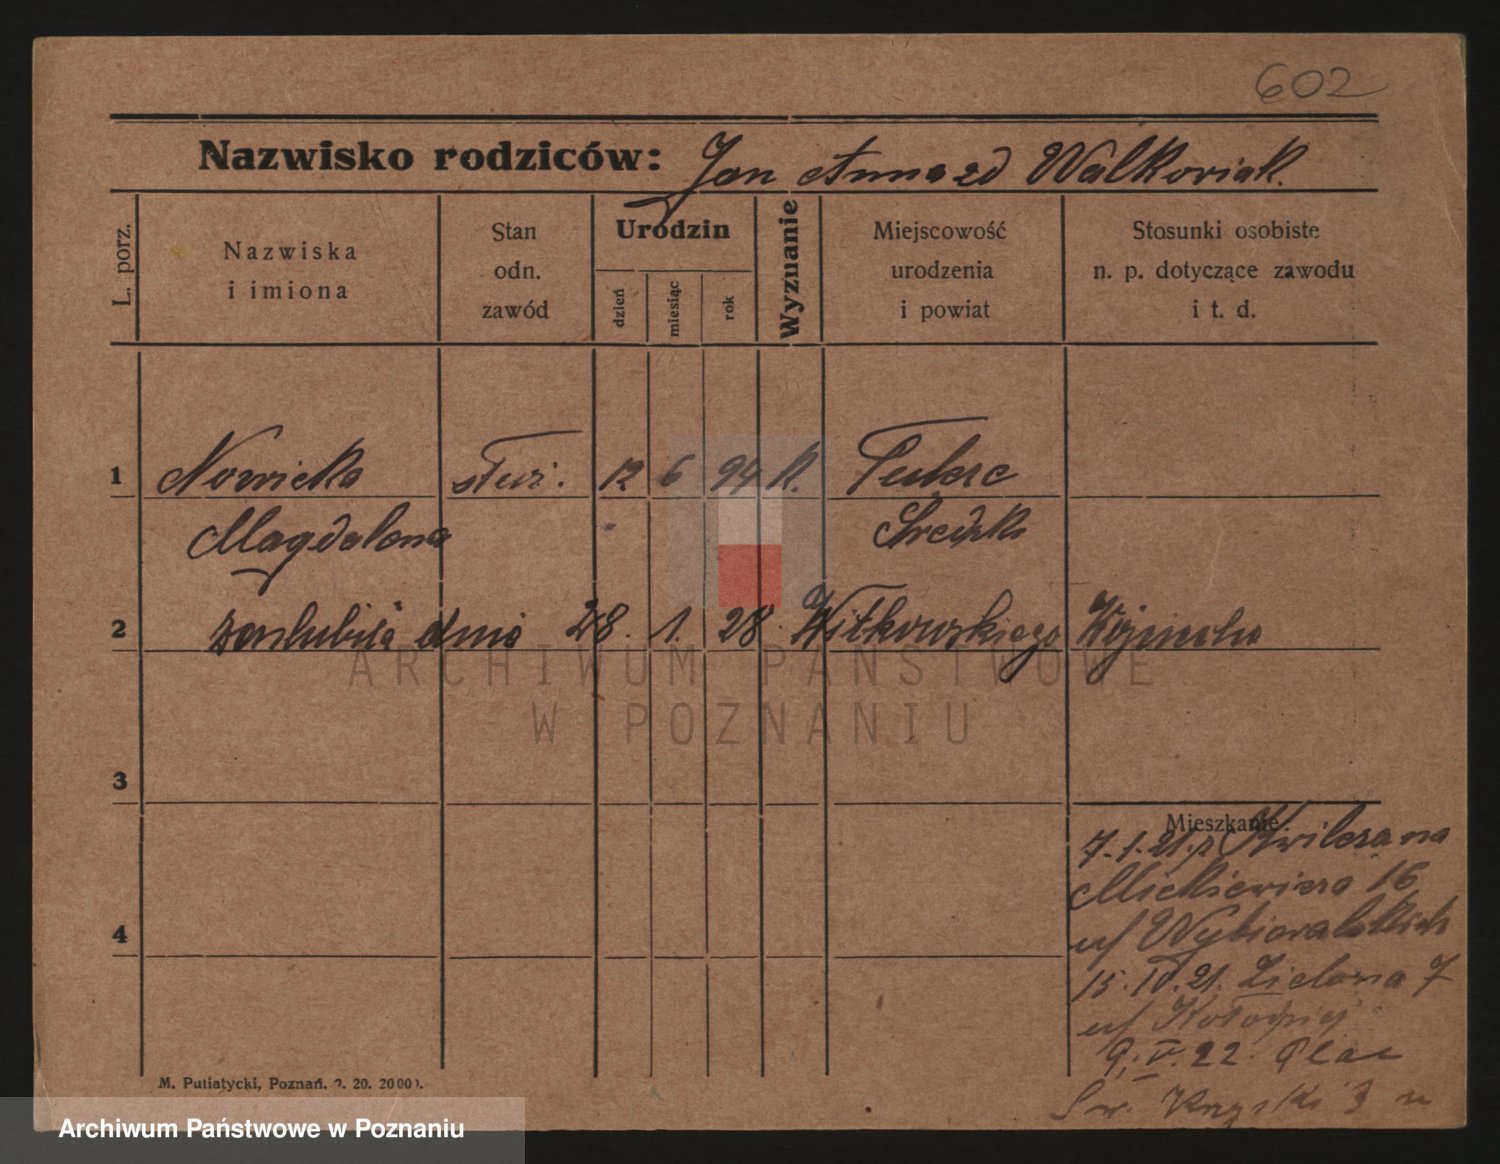 602
Nazwisko rodziców: Jan Anna zd Walkowiak.
L. porz.
Nazwiska
i imiona
Stan
odn.
zawód
Urodzin
dzień
miesiąc
rok
Wyznanie
Miejscowość
urodzenia
i powiat
Stosunki osobiste
n. p. dotyczące zawodu
i t. d.
1 Nowicka służ. 12 6 94 k.
Magdalena Średzki
2 zaślubiła dnia 28. 1. 28. Witkowskiego Wojciecha
3
Mieszkanie:
7.1.21. na
Mickiewicza 16
4 u/
15.10.21. Zielona 7
u/
9. V. 22. Plac
Św. 3 u
M. Putiatycki, Poznań. 20. 2000).
ARCHIWUM PAŃSTWOWE
W POZNANIU
Archiwum Państwowe w Poznaniu